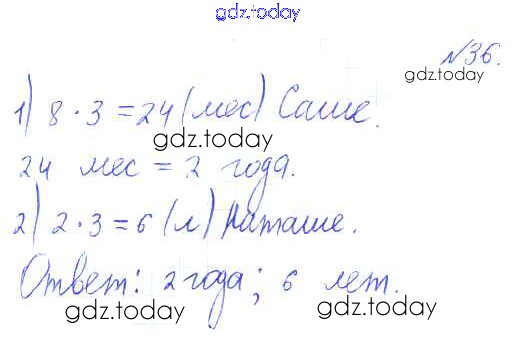 gdz.today
№36.
gdz.today
1) 8 · 3 = 24 (мес) Саше.
gdz.today
24 мес = 2 года.
2) 2 · 3 = 6 (л) Наташе.
gdz.today
Ответ: 2 года; 6 лет.
gdz.today
gdz.today